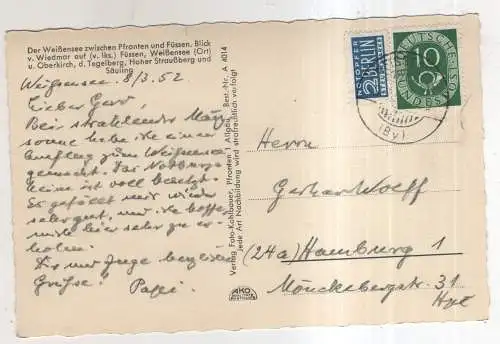 Der Weißensee zwischen Pfronten und Füssen. Blick
v. Wiedmar auf (v. lks.) Füssen, Weißensee (Ort)
u. Oberkirch, d. Tegelberg, Hoher Straußberg und
Säuling
Weißensee 8/3. 52
Lieber Gerd,
Bei strahlender März
sonne habe ich einen
Ausflug zum Weißensee
gemacht. Das
heim ist voll besetzt.
Es gefällt mir wieder
sehr gut, und ich hoffe,
mich hier sehr zu er-
holen.
Dir und Inge herzliche
Grüße! Papi.
Verlag Foto-Kohlbauer, Pfronten i. Allgäu Best.-Nr. A 4014
Jede Art Nachbildung wird strafrechtlich verfolgt
AKO
NOTOPFER
2 BERLIN
STEUERMARKE
DEUTSCHE BUNDESPOST
10
(Bay)
Herrn
Gerhard Wolff
(24a) Hamburg 1
Mönckebergstr. 31
Hpt